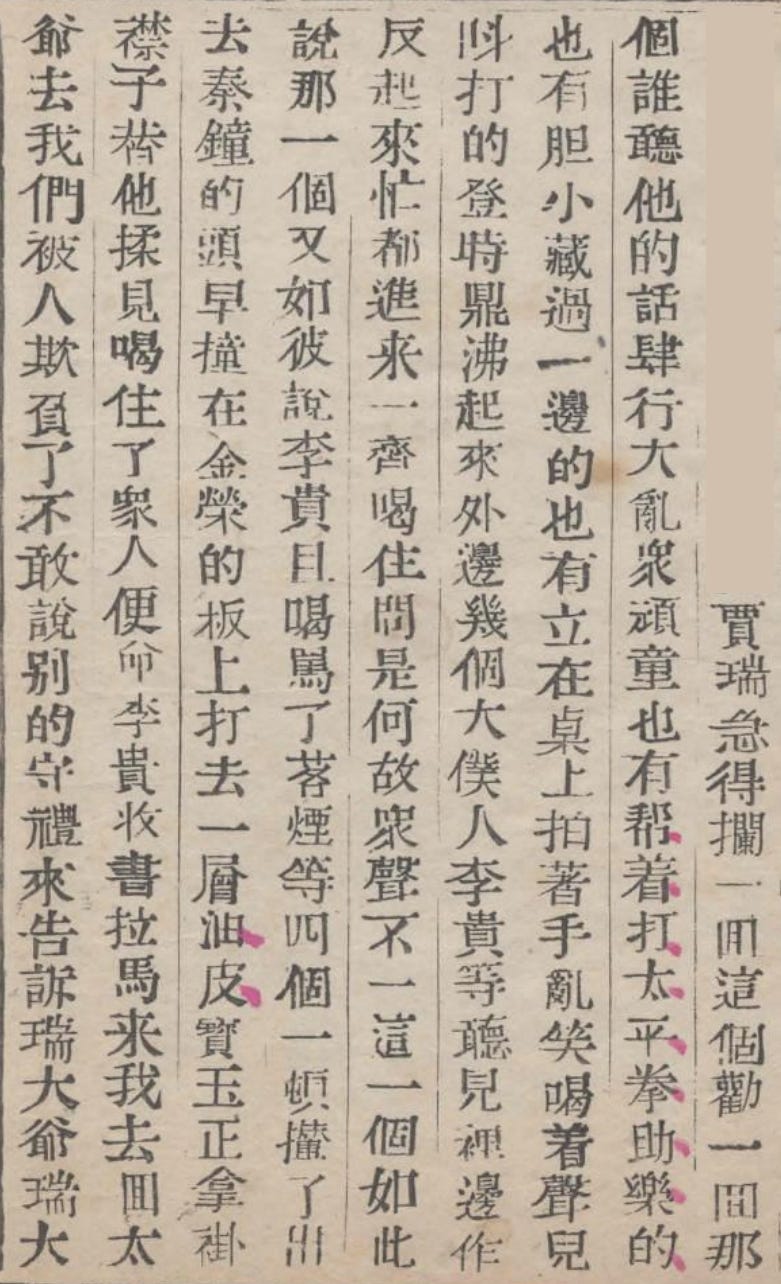 賈瑞急得攔一回這個勸一回那
個誰聽他的話肆行大亂衆頑童也有帮着打太平拳助樂的
也有胆小藏過一邊的也有立在桌上拍著手亂笑喝着聲兒
叫打的登時鼎沸起來外邊幾個大僕人李貴等聽見裡邊作
反起來忙都進来一齊喝住問是何故衆聲不一這一個如此
說那一個又如彼說李貴且喝罵了茗煙等四個一頓攆了出
去秦鐘的頭早撞在金榮的板上打去一層油皮寳玉正拿褂
襟子替他揉見喝住了衆人便命李貴收書拉馬来我去回太
爺去我們被人欺負了不敢說别的守禮來告訴瑞大爺瑞大